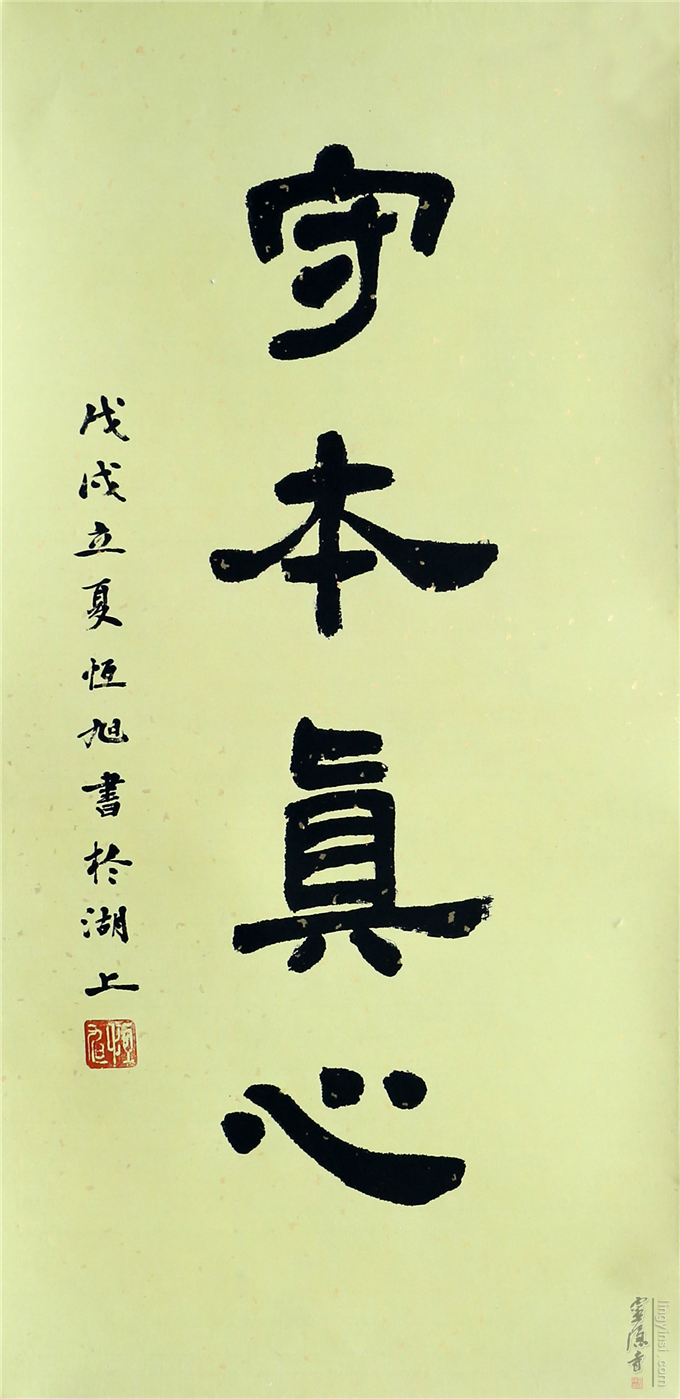 守本真心
戊戌立夏恒旭書於湖上
恒旭
靈隱寺
lingyinsi.com